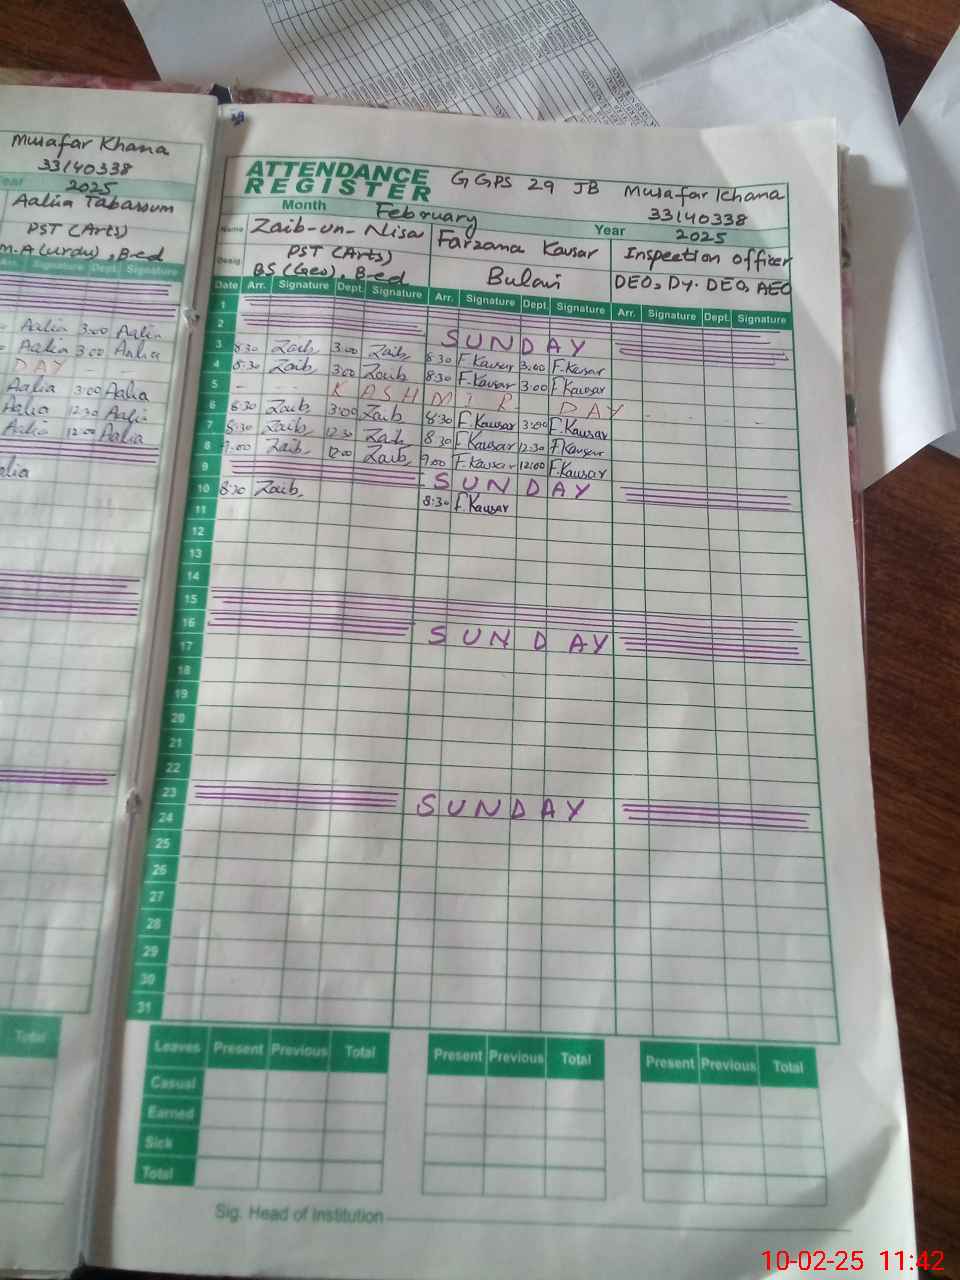 Musafar Khana
33140338
Year
2025
Aalia Tabassum
PST (Arts)
M.A (Urdu), B-ed
Arr. Signature Dept. Signature
Aalia 3:00 Aalia
Aalia 3:00 Aalia
DAY
Aalia 3:00 Aalia
Aalia 12:30 Aalia
Aalia 12:00 Aalia
Aalia
Total
ATTENDANCE REGISTER
GGPS 29 JB Musafar Khana
33140338
Month February Year 2025
Name Zaib-un-Nisa Farzana Kausar Inspection officer
Desig. PST (Arts) BS (Geo), B-ed Bulavi DEO, Dy. DEO, AEO
Date Arr. Signature Dept. Signature Arr. Signature Dept. Signature Arr. Signature Dept. Signature
1
2 SUNDAY
3 8:30 Zaib 3:00 Zaib 8:30 F.Kausar 3:00 F.Kausar
4 8:30 Zaib 3:00 Zaib 8:30 F.Kausar 3:00 F.Kausar
5 KASHMIR DAY
6 8:30 Zaib 3:00 Zaib 8:30 F.Kausar 3:00 F.Kausar
7 8:30 Zaib 12:30 Zaib 8:30 F.Kausar 12:30 F.Kausar
8 9:00 Zaib 12:00 Zaib 9:00 F.Kausar 12:00 F.Kausar
9 SUNDAY
10 8:30 Zaib 8:30 F.Kausar
11
12
13
14
15
16 SUNDAY
17
18
19
20
21
22
23 SUNDAY
24
25
26
27
28
29
30
31
Leaves Present Previous Total Present Previous Total Present Previous Total
Casual
Earned
Sick
Total
Sig. Head of Institution
10-02-25 11:42